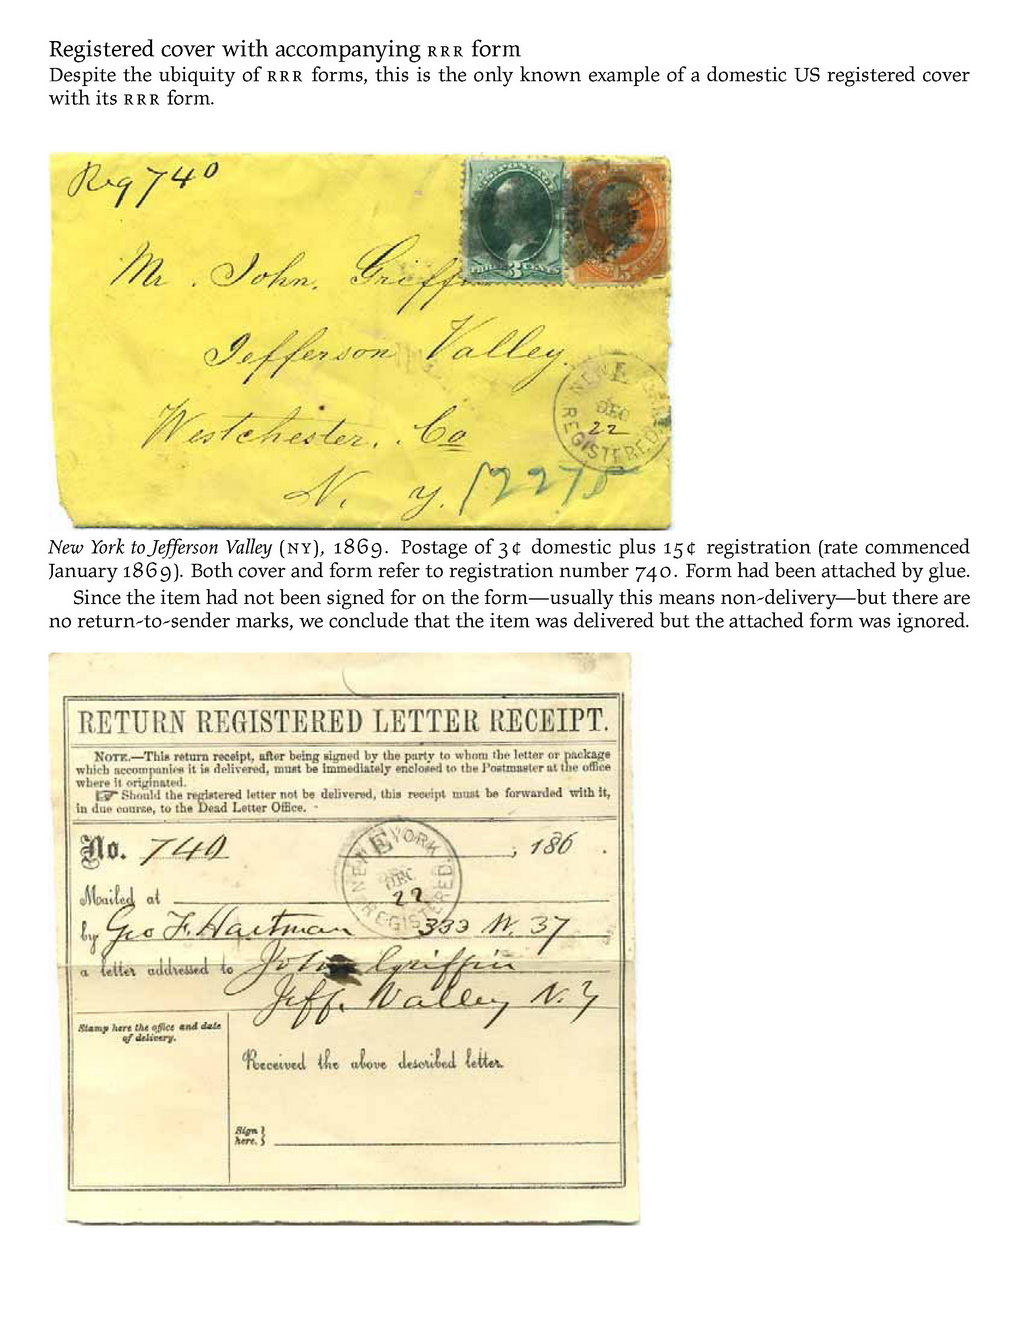 Registered cover with accompanying RRR form
Despite the ubiquity of RRR forms, this is the only known example of a domestic US registered cover
with its RRR form.
Reg 740
THREE 3 CENTS
Mr. John. Griffin
Jefferson Valley.
NEW YORK
E
DEC
22
REGISTERED
Westchester. Co
N. Y.
12275
New York to Jefferson Valley (NY), 1869. Postage of 3¢ domestic plus 15¢ registration (rate commenced
January 1869). Both cover and form refer to registration number 740. Form had been attached by glue.
Since the item had not been signed for on the form—usually this means non-delivery—but there are
no return-to-sender marks, we conclude that the item was delivered but the attached form was ignored.
RETURN REGISTERED LETTER RECEIPT.
NOTE.—This return receipt, after being signed by the party to whom the letter or package
which accompanies it is delivered, must be immediately enclosed to the Postmaster at the office
where it originated.
☞ Should the registered letter not be delivered, this receipt must be forwarded with it,
in due course, to the Dead Letter Office.
No. 740 , 186 .
NEW YORK
E
DEC
22
REGISTERED
Mailed at
by Geo F. Hartman 333 W. 37
a letter addressed to John Griffin
Jeff. Valley N.Y
Stamp here the office and date
of delivery.
Received the above described letter.
Sign
here.